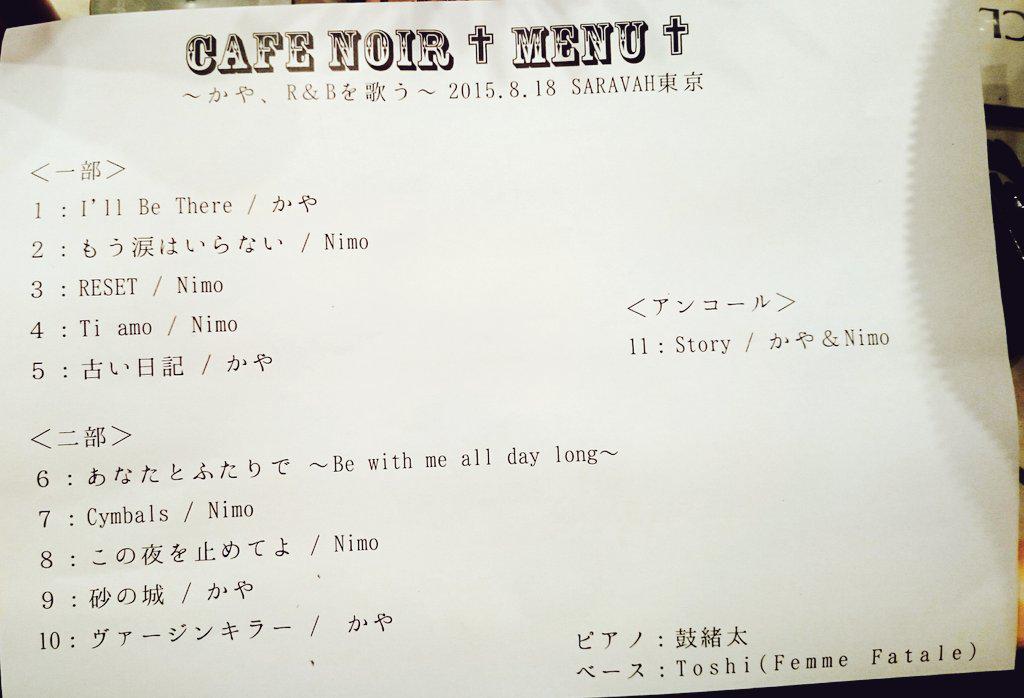 CAFE NOIR † MENU †
～かや、R&Bを歌う～ 2015.8.18 SARAVAH東京
＜一部＞
1：I'll Be There / かや
2：もう涙はいらない / Nimo
3：RESET / Nimo
4：Ti amo / Nimo
5：古い日記 / かや
＜二部＞
6：あなたとふたりで ～Be with me all day long～
7：Cymbals / Nimo
8：この夜を止めてよ / Nimo
9：砂の城 / かや
10：ヴァージンキラー / かや
＜アンコール＞
11：Story / かや＆Nimo
ピアノ：鼓緒太
ベース：Toshi(Femme Fatale)